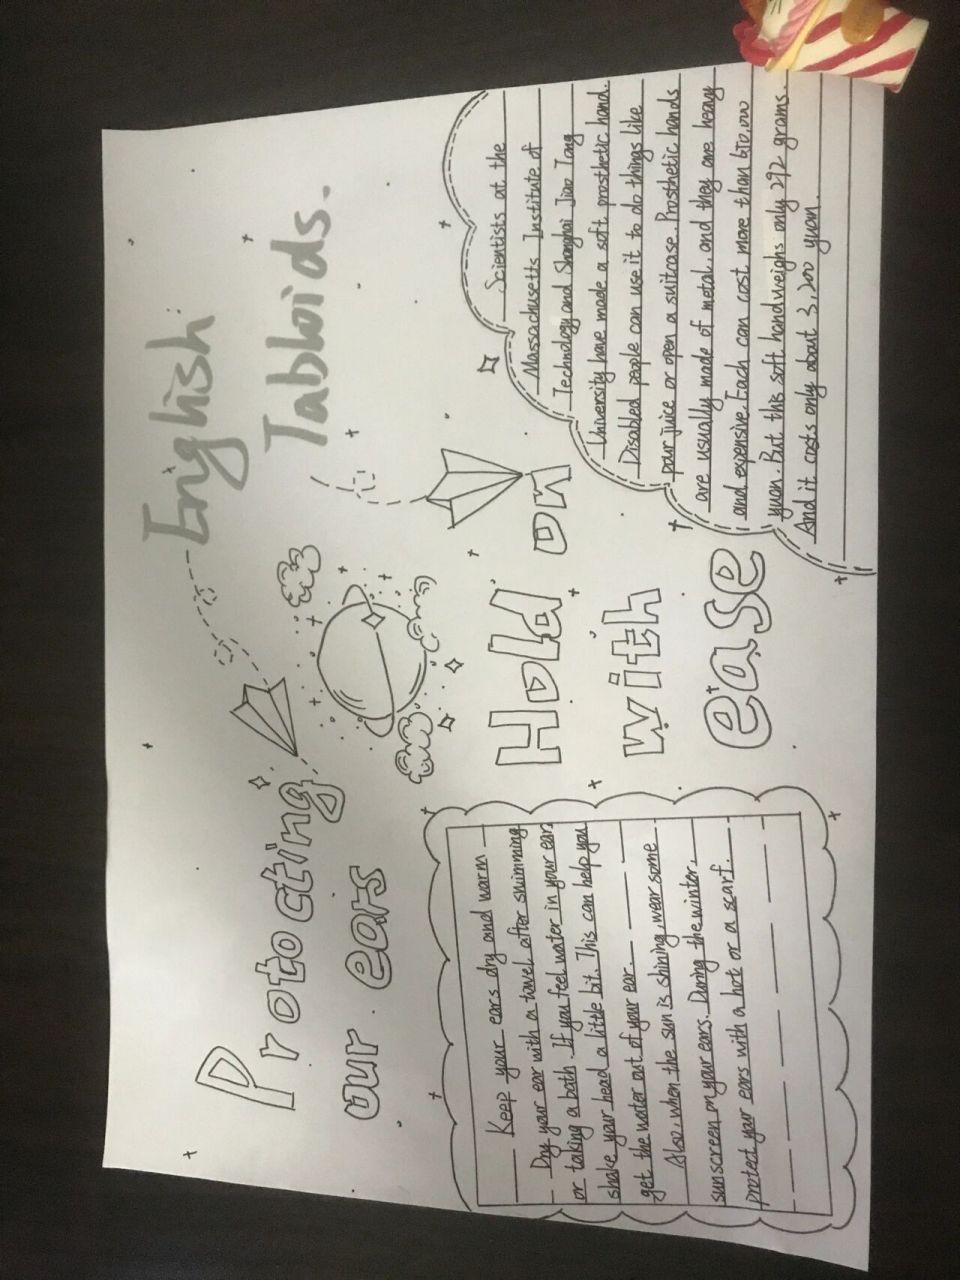 English
Tabloids.
Protocting
our ears
Keep your ears dry and warm
Dry your ear with a towel after swimming
or taking a bath. If you feel water in your ear,
shake your head a little bit. This can help you
get the water out of your ear.
Also, when the sun is shining, wear some
sunscreen on your ears. During the winter,
protect your ears with a hot or a scarf.
Hold on
with
ease
Scientists at the
Massachusetts Institute of
Technology and Shanghai Jiao Tong
University have made a soft prosthetic hand.
Disabled people can use it to do things like
pour juice or open a suitcase. Prosthetic hands
are usually made of metal, and they are heavy
and expensive. Each can cost more than
yuan. But this soft hand weighs only 292 grams.
And it costs only about 3,200 yuan.